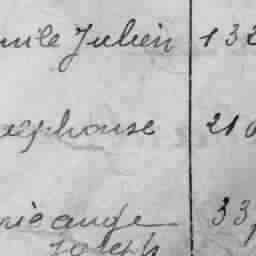 mile Julien 132
lephonse 210
rie ange 33,
Joseph